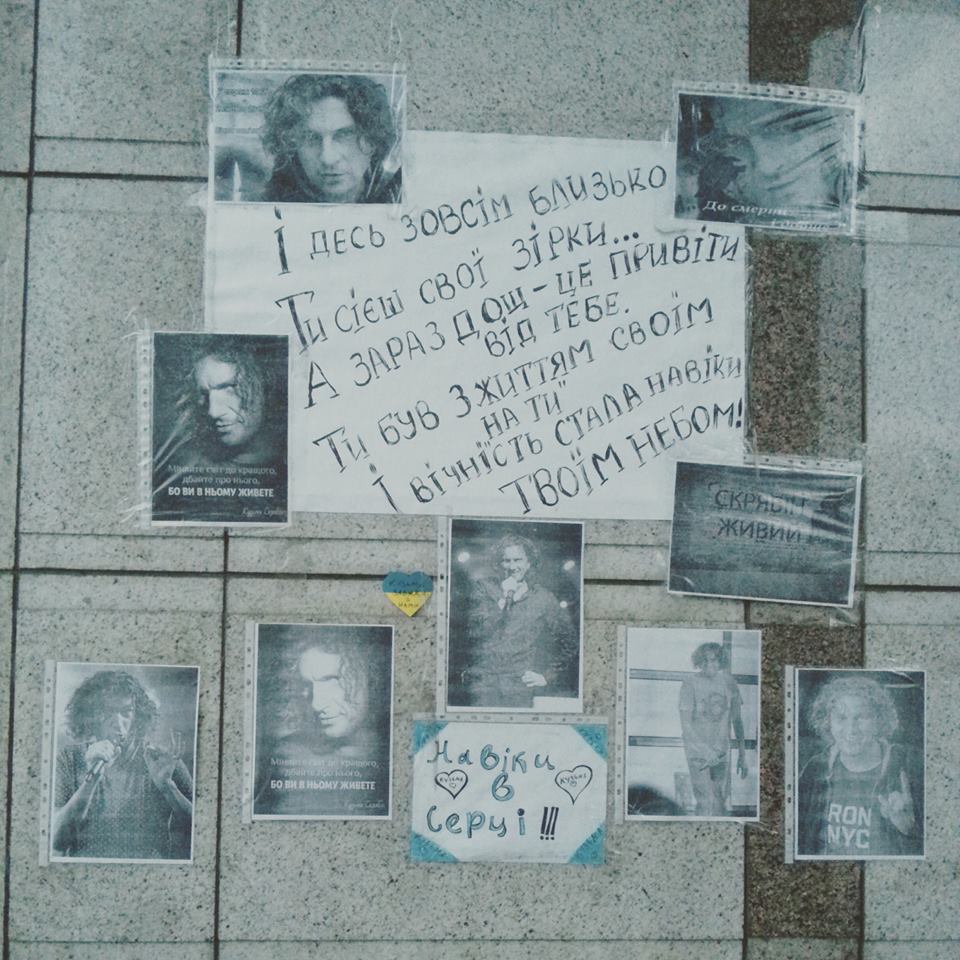 І ДЕСЬ ЗОВСІМ БЛИЗЬКО
ТИ СІЄШ СВОЇ ЗІРКИ...
А ЗАРАЗ ДОЩ - ЦЕ ПРИВІТИ
ВІД ТЕБЕ.
ТИ БУВ З ЖИТТЯМ СВОЇМ
НА ТИ"
І ВІЧНІСТЬ СТАЛА НАВІКИ
ТВОЇМ НЕБОМ!
До смерті
Міняйте світ до кращого,
дбайте про нього,
БО ВИ В НЬОМУ ЖИВЕТЕ
Кузьма Скрябін
"СКРЯБІН
ЖИВИЙ"
Міняйте світ до кращого,
дбайте про нього,
БО ВИ В НЬОМУ ЖИВЕТЕ
Кузьма Скрябін
Навіки
КУЗЬМА
в
КУЗЬМА
Серці !!!
RON
NYC